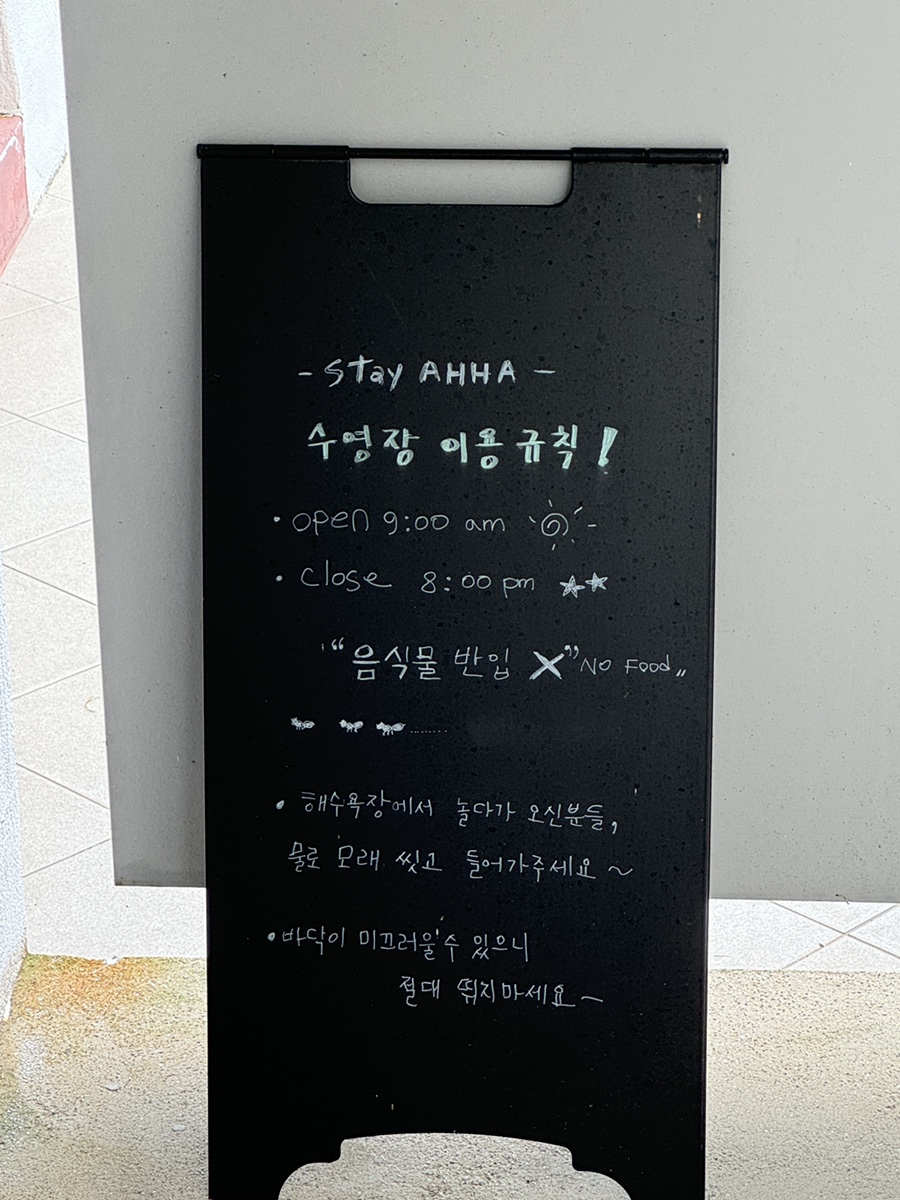 - Stay AHHA -
수영장 이용규칙!
· open 9:00 am
· close 8:00 pm
“음식물 반입 X” No Food „
· 해수욕장에서 놀다가 오신분들,
물로 모래 씻고 들어가주세요~
· 바닥이 미끄러울 수 있으니
절대 뛰지마세요~